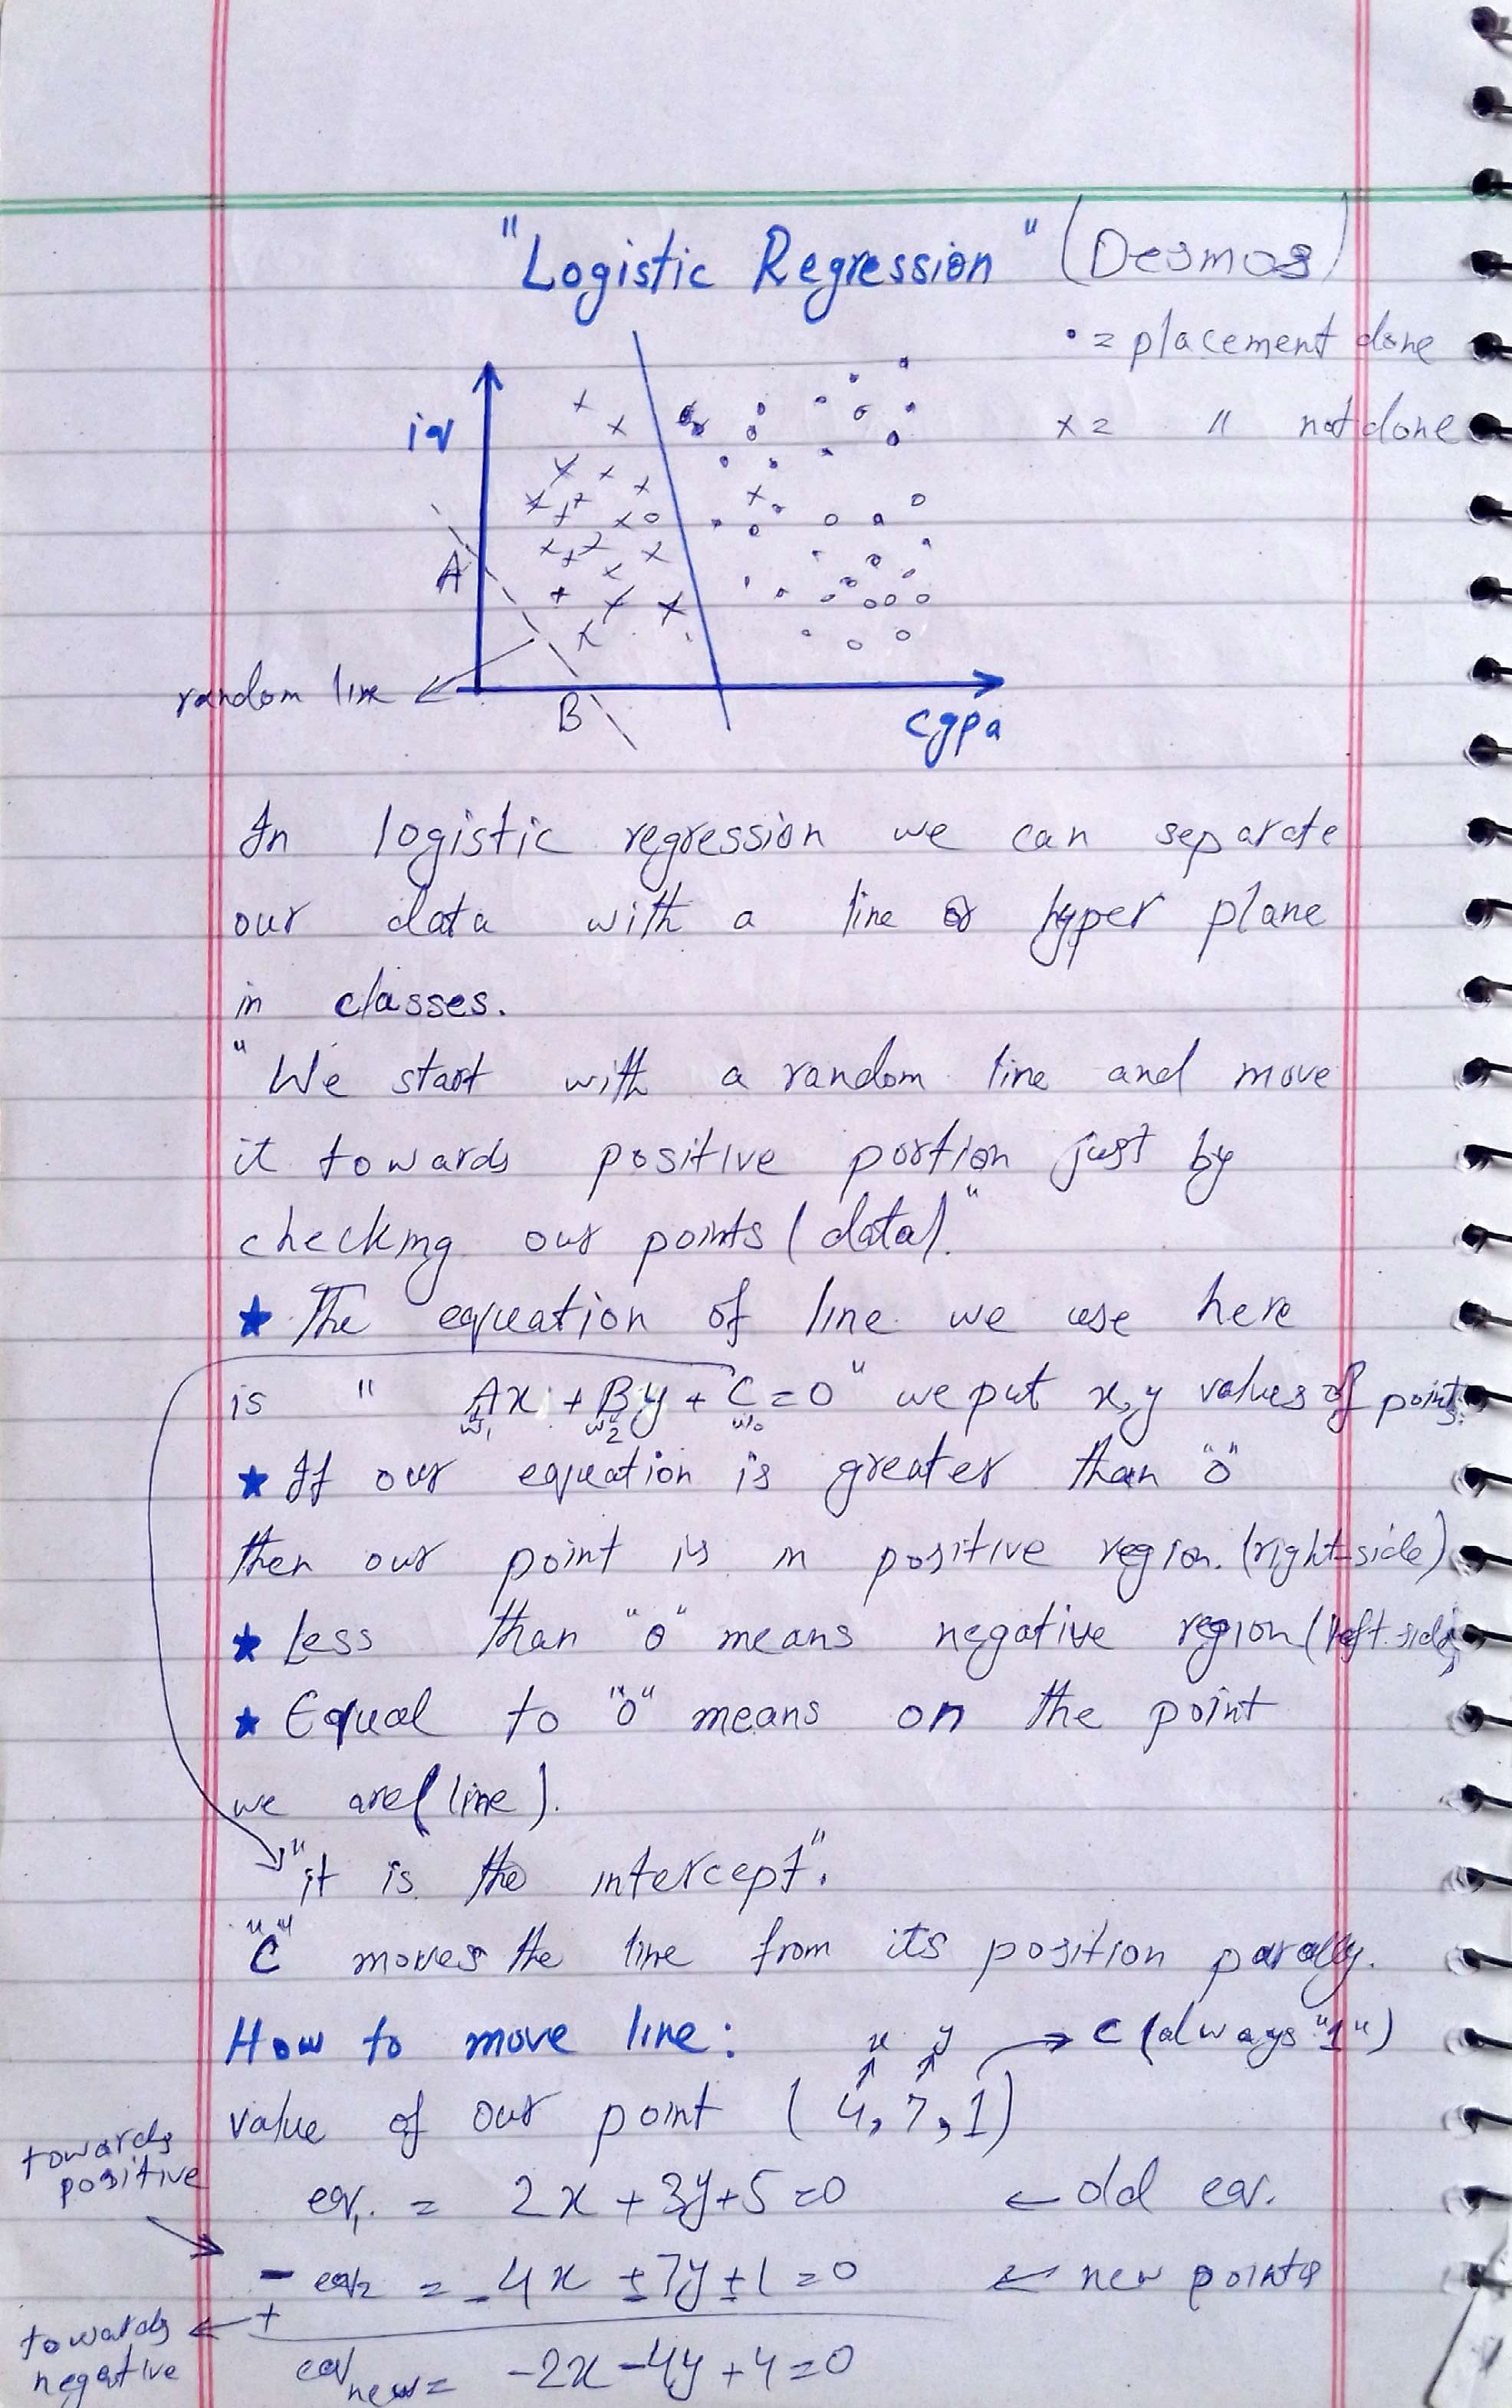 "Logistic Regression" (Desmos)
• = placement done
x = " not done
iq
A
random line
B
cgpa
In logistic regression we can separate
our data with a line or hyper plane
in classes.
"We start with a random line and move
it towards positive portion just by
checking our points (data)."
★ The equation of line we use here
is " Ax + By + C = 0" we put x,y values of points.
w₁ w₂ w₀
★ If our equation is greater than "0"
then our point is in positive region. (right side)
★ Less than "0" means negative region (left side)
★ Equal to "0" means on the point
we are (line).
"it is the intercept".
"C" moves the line from its position parally.
How to move line: x y → C (always "1")
value of our point (4, 7, 1)
towards
positive
eq₁. = 2x + 3y + 5 = 0 ← old eq.
- eq₂ = -4x ± 7y ± 1 = 0 ← new points
+
towards
negative
eq new = -2x - 4y + 4 = 0